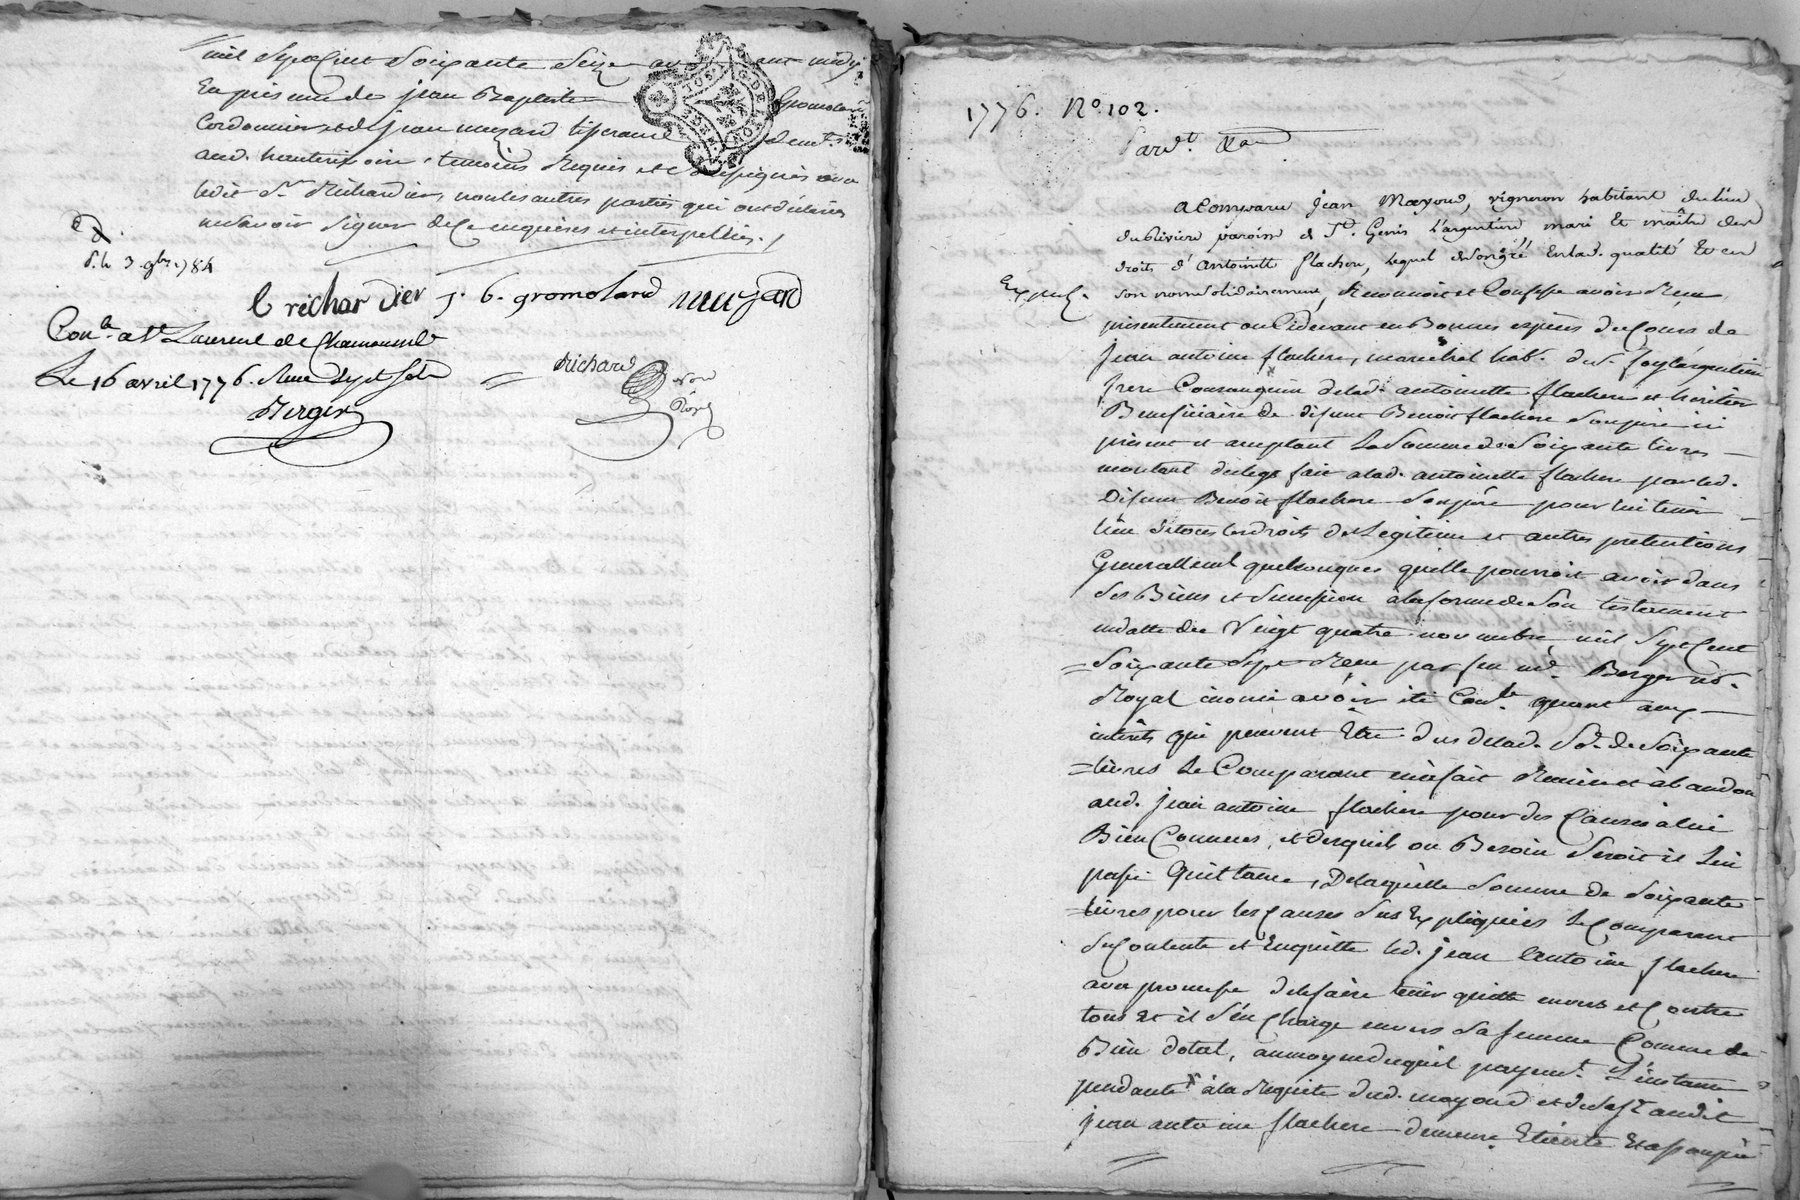 mil Sept Cent Soixante Seize
En presence de jean Baptiste gromolard
Cordonnier, et de jean muzard tisserand demt.
aud. hauterivoire, temoins Requis et soussignés avec
ledit Sr. Richardier, non les autres parties qui ont déclaré
ne Savoir Signer de Ce enquises et interpellées ./
d. le 3 9bre 1784
C richardier j. b. gromolard muzard
Conlé. a St. Laurent de Chamousset
Le 16 avril 1776. Reçu Sept sols
Berger
Richard
Nore
Royal
1776. No. 102.
Pardt.
a Comparu jean Mayoud, vigneron habitant du lieu
paroisse de St. Genis L'argentiere, mari Et maître des
droits d'Antoinette flachere, lequel de son gré En lad. qualité Et en
Expedié.
Son nom Solidairement, Reconnoit et Confesse avoir Reçu
présentement ou Cidevant en Bonnes espèces du Cours de
jean antoine flachere, marechal habt. de St. foy l'argentiere
frere Consanguin de lad. antoinette flachere et héritier
Beneficiaire de defunt Benoit flachere Son père ici
présent et acceptant La Somme de Soixante livres —
montant du legs fait a lad. antoinette flachere par led.
Defunt Benoit flachere Son père pour lui tenir
lieu de tous Ses droits de Legitime et autres pretentions
Generallement quelconques qu'elle pourroit avoir dans
Ses Biens et Succession à la forme de Son testament
en datte du Vingt quatre novembre mil Sept Cent
= Soixante Sept Reçu par feu me. Berger no.
Royal inoui avoir été Conlé. quant aux —
intérêts qui peuvent Etre dus de lad. Se. de Soixante
= livres Le Comparant en a fait Remise et abandon
aud. jean antoine flachere pour des Causes a lui
Bien Connues, et desquels ou Besoin Seroit il L'en
passe Quittance, De laquelle Somme de Soixante
= livres pour les Causes Sus Expliquées Le Comparant
Se Contente et Enquitte led. jean antoine flachere
avec promesse de le faire tenir quitte envers et Contre
tous Et il S'en Charge envers Sa femme Comme de
Bien dotal, au moyen duquel payemt. L'instance
pendante à la Requete dud. mayoud et de Sa fe. audit
jean antoine flachere demeure Eteinte Et assoupie